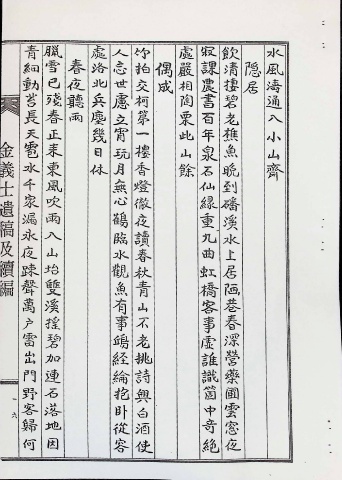 水風濤通入小山齊
隠居
飮清樓碧老樵魚晩到磻溪水上居陋巷春深營藥圃雲窓夜
寂課農書百年泉石仙緣重九曲虹橋客事虛誰識箇中奇絶
處嚴相陶栗此山餘
偶成
竹拍交柯第一樓香燈徹夜讀春秋靑山不老挑詩興白酒使
人忘世慮立宵玩月無心鶴臨水觀魚有事鴟經綸抱卧從容
處洛北兵塵幾日休
春夜聽雨
臘雪已殘春正来東風吹雨入山坮雙溪搖碧加連石落地因
靑細動苔長天雹水千家漏永夜疎聲萬户雷出門野客歸何
金義士遺稿及續編
一六